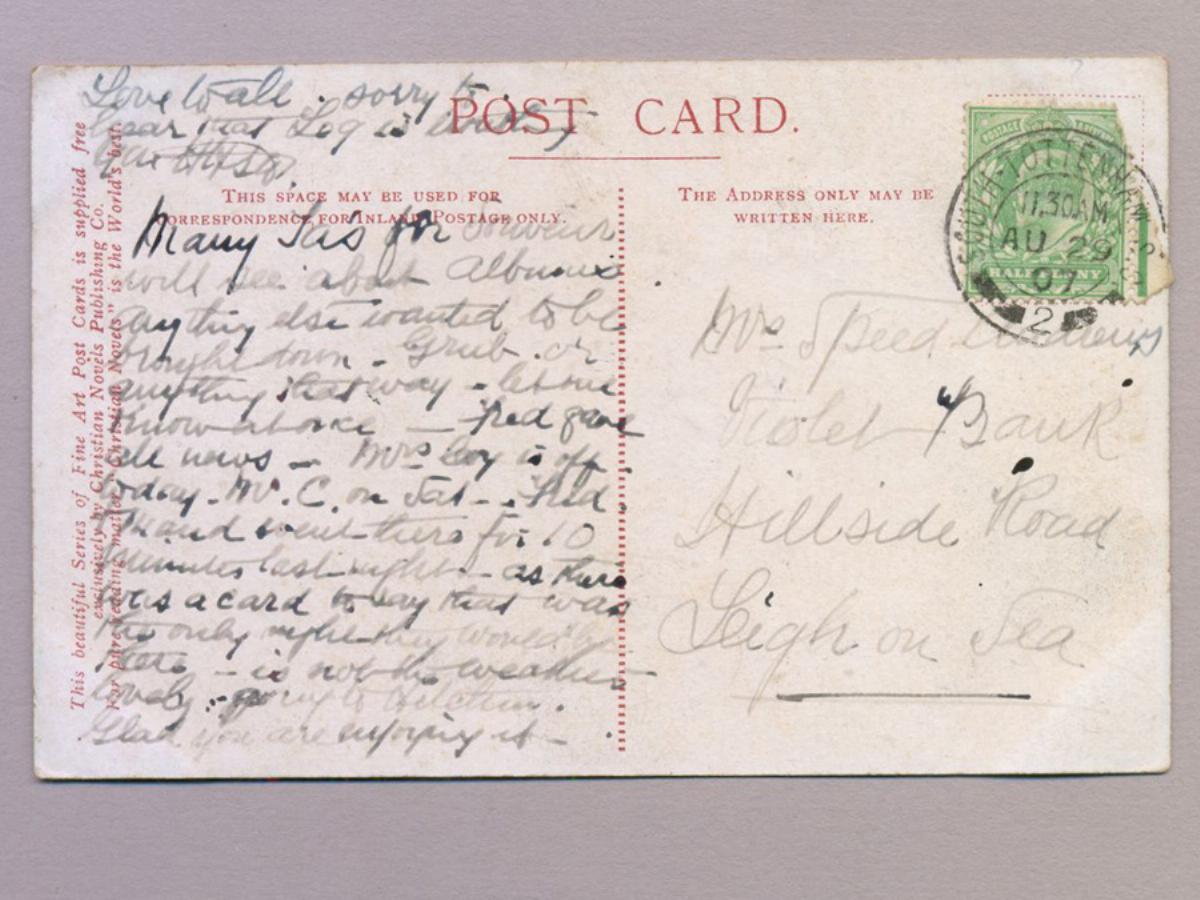 POST CARD.
THIS SPACE MAY BE USED FOR
CORRESPONDENCE FOR INLAND POSTAGE ONLY.
THE ADDRESS ONLY MAY BE
WRITTEN HERE.
This beautiful Series of Fine Art Post Cards is supplied free
exclusively by Christian Novels Publishing Co.
For pure wedding matter "Christian Novels" is the World's best.
Love to all. sorry to
hear that Log is
Many Tas for
will see about Albums
anything else wanted to be
brought down - Grub or
anything that way - let me
know at once - Fred gave
all news - Mrs is off
today. Mr. C. on Sat - Fred
and went there for 10
minutes last night - as there
was a card to say that was
the only night they would be
there - is not the weather
lovely - going to
Glad you are enjoying it -
POSTAGE
HALFPENNY
SOUTH TOTTENHAM S.O.
11.30 AM
AU 29
07
2
Mrs Speed
Violet Bank
Hillside Road
Leigh on Sea